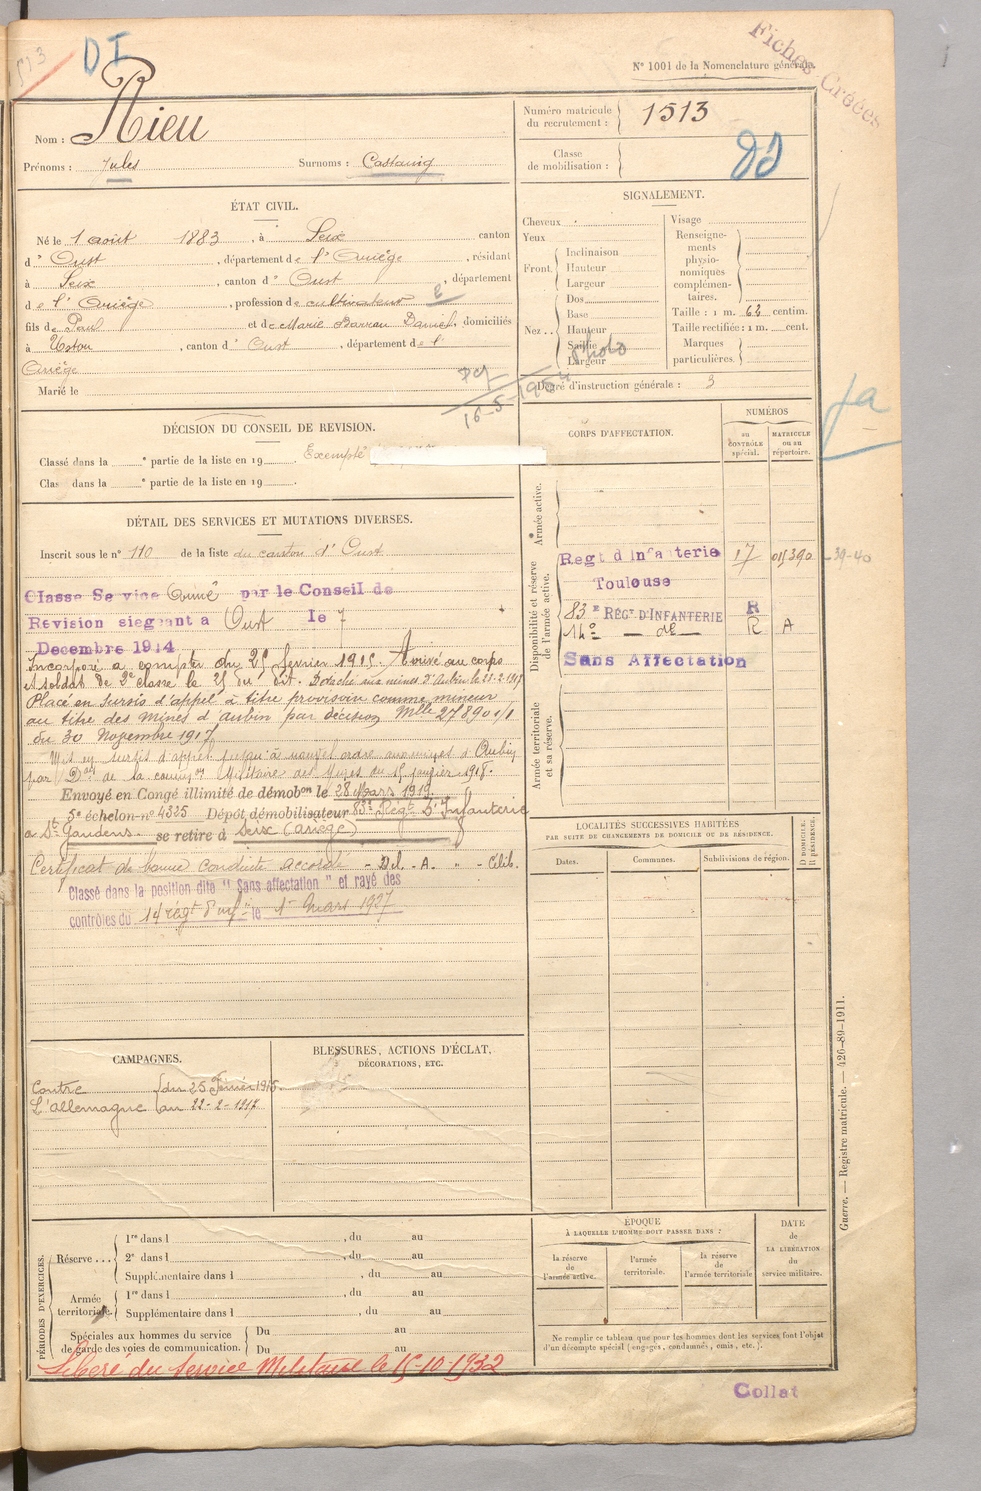 513
DI
Fiches Créées
N° 1001 de la Nomenclature générale.
Nom : Rieu
Prénoms : Jules Surnoms : Castanig
Numéro matricule du recrutement : 1513
Classe de mobilisation :
ÉTAT CIVIL.
Né le 1 août 1883, à Seix canton
d'Oust, département de l'Ariège, résidant
à Seix, canton d'Oust, département
de l'Ariège, profession de cultivateur
fils de Paul et de Marie Barrau Daniel, domiciliés
à Ustou, canton d'Oust, département de l'
Ariège
Marié le
16-5-1954
SIGNALEMENT.
Cheveux
Yeux
Front. Inclinaison
Hauteur
Largeur
Nez .. Dos
Base
Hauteur
Saillie
Largeur
Photo
Visage
Renseignements physionomiques complémentaires.
Taille : 1 m. 62 centim.
Taille rectifiée : 1 m. cent.
Marques particulières.
Degré d'instruction générale : 3
DÉCISION DU CONSEIL DE REVISION.
Classé dans la e partie de la liste en 19 . Exempté
Clas dans la e partie de la liste en 19 .
DÉTAIL DES SERVICES ET MUTATIONS DIVERSES.
Inscrit sous le n° 110 de la liste du canton d'Oust
Classe Service Armé par le Conseil de
Revision siegeant a Oust le 7
Decembre 1914
Incorporé à compter du 25 février 1915. Arrivé au corps
et soldat de 2e classe le 25 du dit. Détaché aux mines d'Aubin le 23-2-1917
Placé en Sursis d'appel à titre provisoire comme mineur
au titre des mines d'aubin par décision Mlle 27890 1/1
du 30 Novembre 1917
Mis en sursis d'appel jusqu'à nouvel ordre aux mines d'Aubin
par Don de la comm on Militaire des Mines du 15 janvier 1918.
Envoyé en Congé illimité de démobon le 28 Mars 1919
5e échelon-n° 4325 Dépôt démobilisateur 83e Régt d'Infanterie
à St Gaudens se retire à Seix (Ariège)
Certificat de bonne conduite accordé - Dél. - A. " - Célib.
Classé dans la position dite "Sans affectation" et rayé des
contrôles du 14 régt d'inf ie le 1er Mars 1927
CORPS D'AFFECTATION.
NUMÉROS
au CONTRÔLE spécial.
MATRICULE ou au répertoire.
Armée active.
Disponibilité et réserve de l'armée active.
Armée territoriale et sa réserve.
Regt d Infanterie 17 011390 -39-40
Toulouse
83e RÉGt D'INFANTERIE R
14e — de — R A
Sans Affectation
LOCALITÉS SUCCESSIVES HABITÉES
PAR SUITE DE CHANGEMENTS DE DOMICILE OU DE RÉSIDENCE.
Dates. Communes. Subdivisions de région.
D. DOMICILE.
R. RÉSIDENCE.
CAMPAGNES.
Contre du 25 Février 1915.
L'Allemagne au 22-2-1917
BLESSURES, ACTIONS D'ÉCLAT,
DÉCORATIONS, ETC.
PÉRIODES D'EXERCICES.
Réserve ... 1re dans l , du au
2e dans l , du au
Supplémentaire dans l , du au
Armée territoriale. 1re dans l , du au
Supplémentaire dans l , du au
Spéciales aux hommes du service de garde des voies de communication. Du au
Du au
Libéré du Service Militaire le 15-10-1932
ÉPOQUE
À LAQUELLE L'HOMME DOIT PASSER DANS :
la réserve de l'armée active.
l'armée territoriale.
la réserve de l'armée territoriale
DATE DE LA LIBÉRATION du service militaire.
Ne remplir ce tableau que pour les hommes dont les services font l'objet
d'un décompte spécial (engagés, condamnés, omis, etc.).
Guerre. — Registre matricule. — 426-89-1911.
Collat